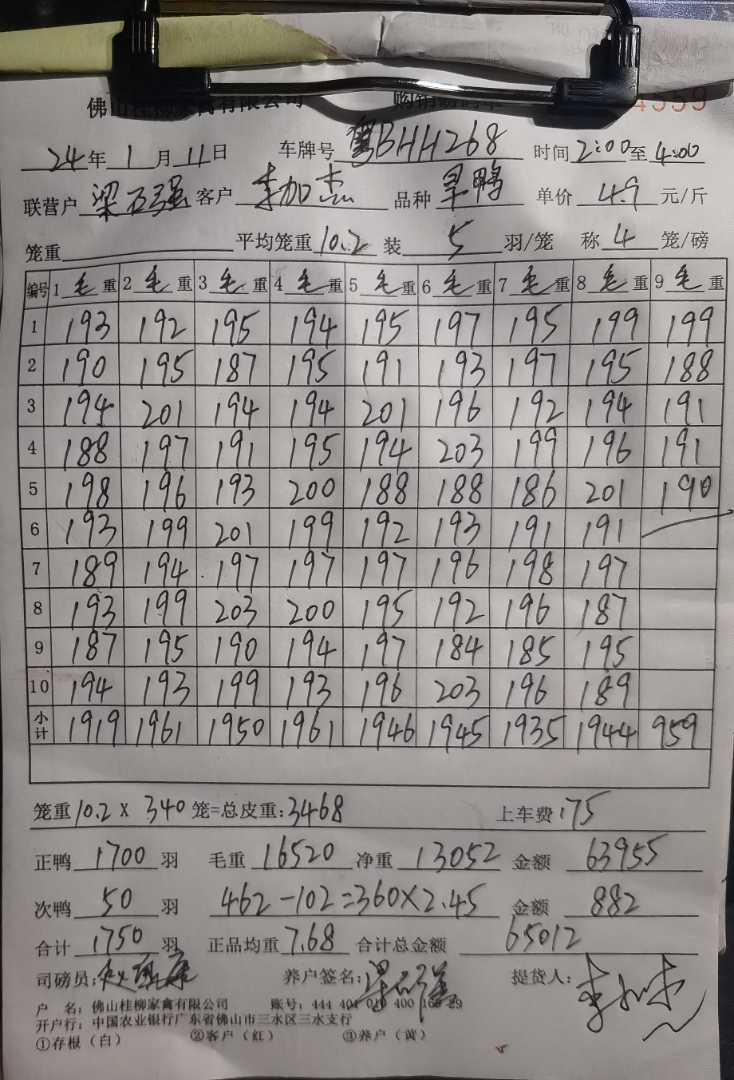 佛山桂柳家禽有限公司
24年1月11日 车牌号 粤BHH268 时间2:00至4:00
联营户 梁石强 客户 李加杰 品种 旱鸭 单价 4.9 元/斤
笼重 平均笼重10.2 装 5 羽/笼 称 4 笼/磅
编号 1毛重 2毛重 3毛重 4毛重 5毛重 6毛重 7毛重 8毛重 9毛重
1 193 192 195 194 195 197 195 199 199
2 190 195 187 195 191 193 197 195 188
3 194 201 194 194 201 196 192 194 191
4 188 197 191 195 194 203 199 196 191
5 198 196 193 200 188 188 186 201 190
6 193 199 201 199 192 193 191 191
7 189 194 197 197 197 196 198 197
8 193 199 203 200 195 192 196 187
9 187 195 190 194 197 184 185 195
10 194 193 199 193 196 203 196 189
小计 1919 1961 1950 1961 1946 1945 1935 1944 959
笼重10.2 X 340 笼=总皮重:3468 上车费175
正鸭 1700 羽 毛重 16520 净重 13052 金额 63955
次鸭 50 羽 462-102=360X2.45 金额 882
合计 1750 羽 正品均重 7.68 合计总金额 65012
司磅员: 养户签名: 梁石强 提货人: 李加杰
户 名: 佛山桂柳家禽有限公司 账号: 444 401 010 400
开户行: 中国农业银行广东省佛山市三水区三水支行
①存根（白） ②客户（红） ③养户（黄）